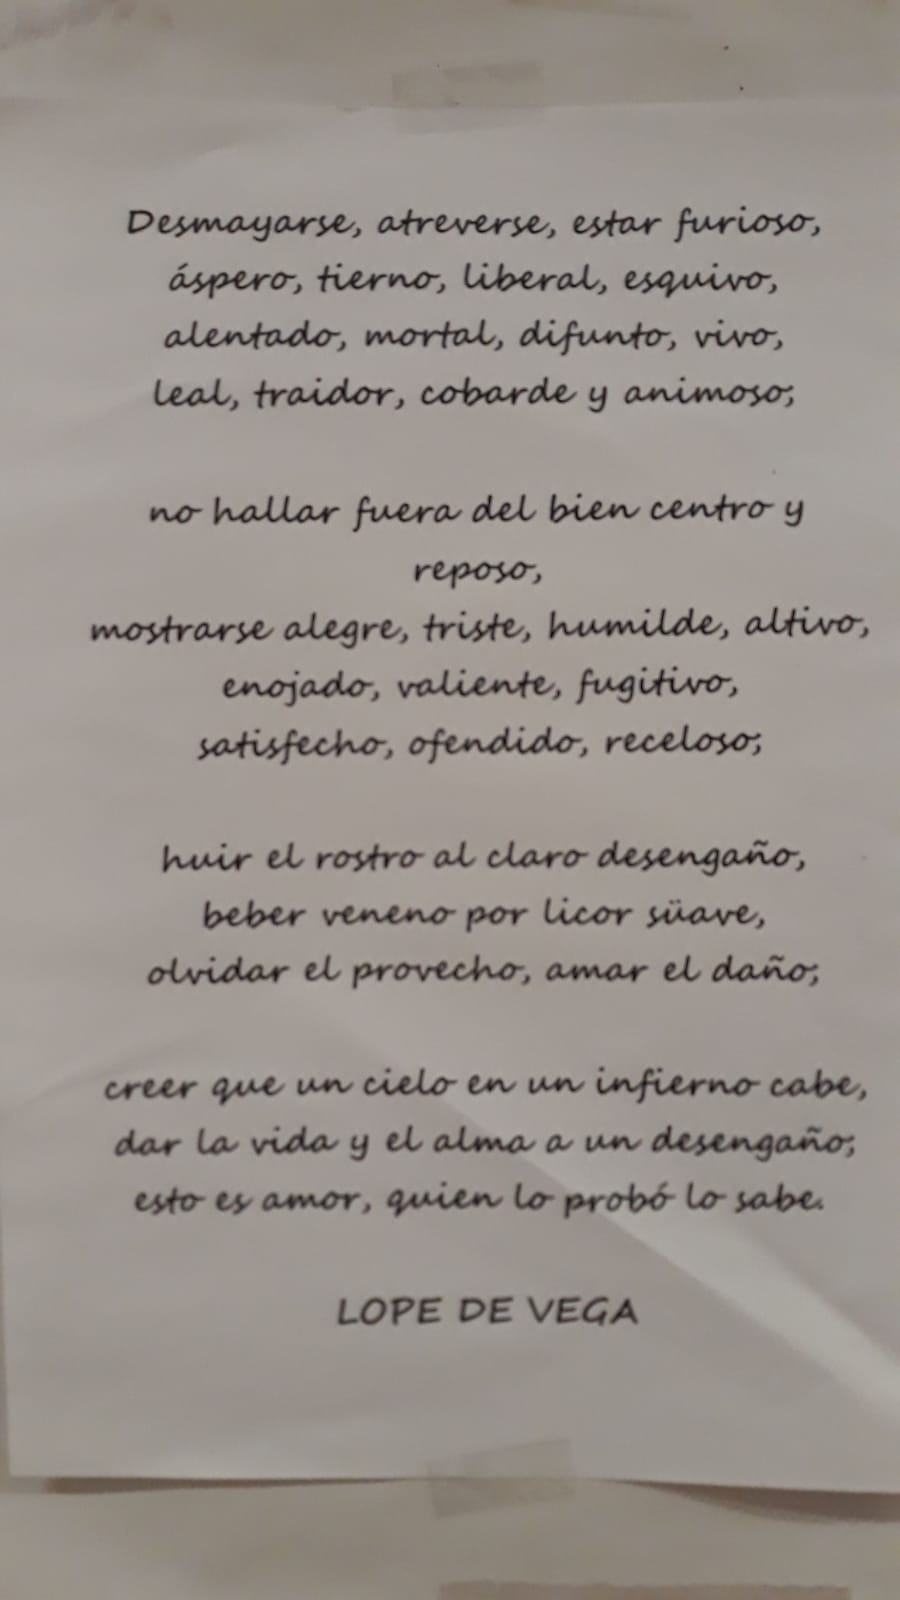 Desmayarse, atreverse, estar furioso,
áspero, tierno, liberal, esquivo,
alentado, mortal, difunto, vivo,
leal, traidor, cobarde y animoso;
no hallar fuera del bien centro y
reposo,
mostrarse alegre, triste, humilde, altivo,
enojado, valiente, fugitivo,
satisfecho, ofendido, receloso;
huir el rostro al claro desengaño,
beber veneno por licor süave,
olvidar el provecho, amar el daño;
creer que un cielo en un infierno cabe,
dar la vida y el alma a un desengaño;
esto es amor, quien lo probó lo sabe.
LOPE DE VEGA